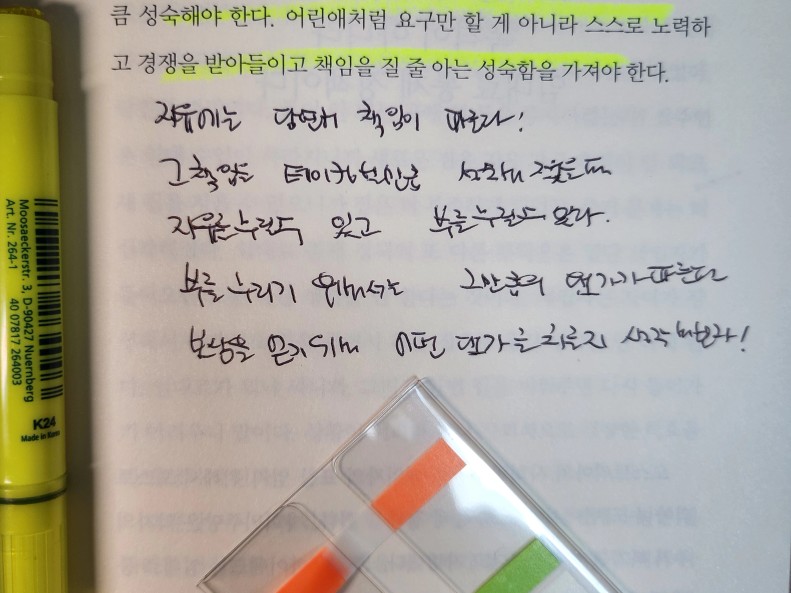 큼 성숙해야 한다. 어린애처럼 요구만 할 게 아니라 스스로 노력하
고 경쟁을 받아들이고 책임을 질 줄 아는 성숙함을 가져야 한다.
자유에는 당연히 책임이 따른다!
그 책임을
자유를 누릴 수도 있고 부를 누릴 수도 있다.
부를 누리기 위해서는 그만큼의 대가가 따른다
보상을 얻기 위해 어떤 대가를 치룰지 생각해보라!
Moosaeckerstr. 3, D-90427 Nuernberg
Art. Nr. 264-1
40 07817 264003
K24
Made in Korea